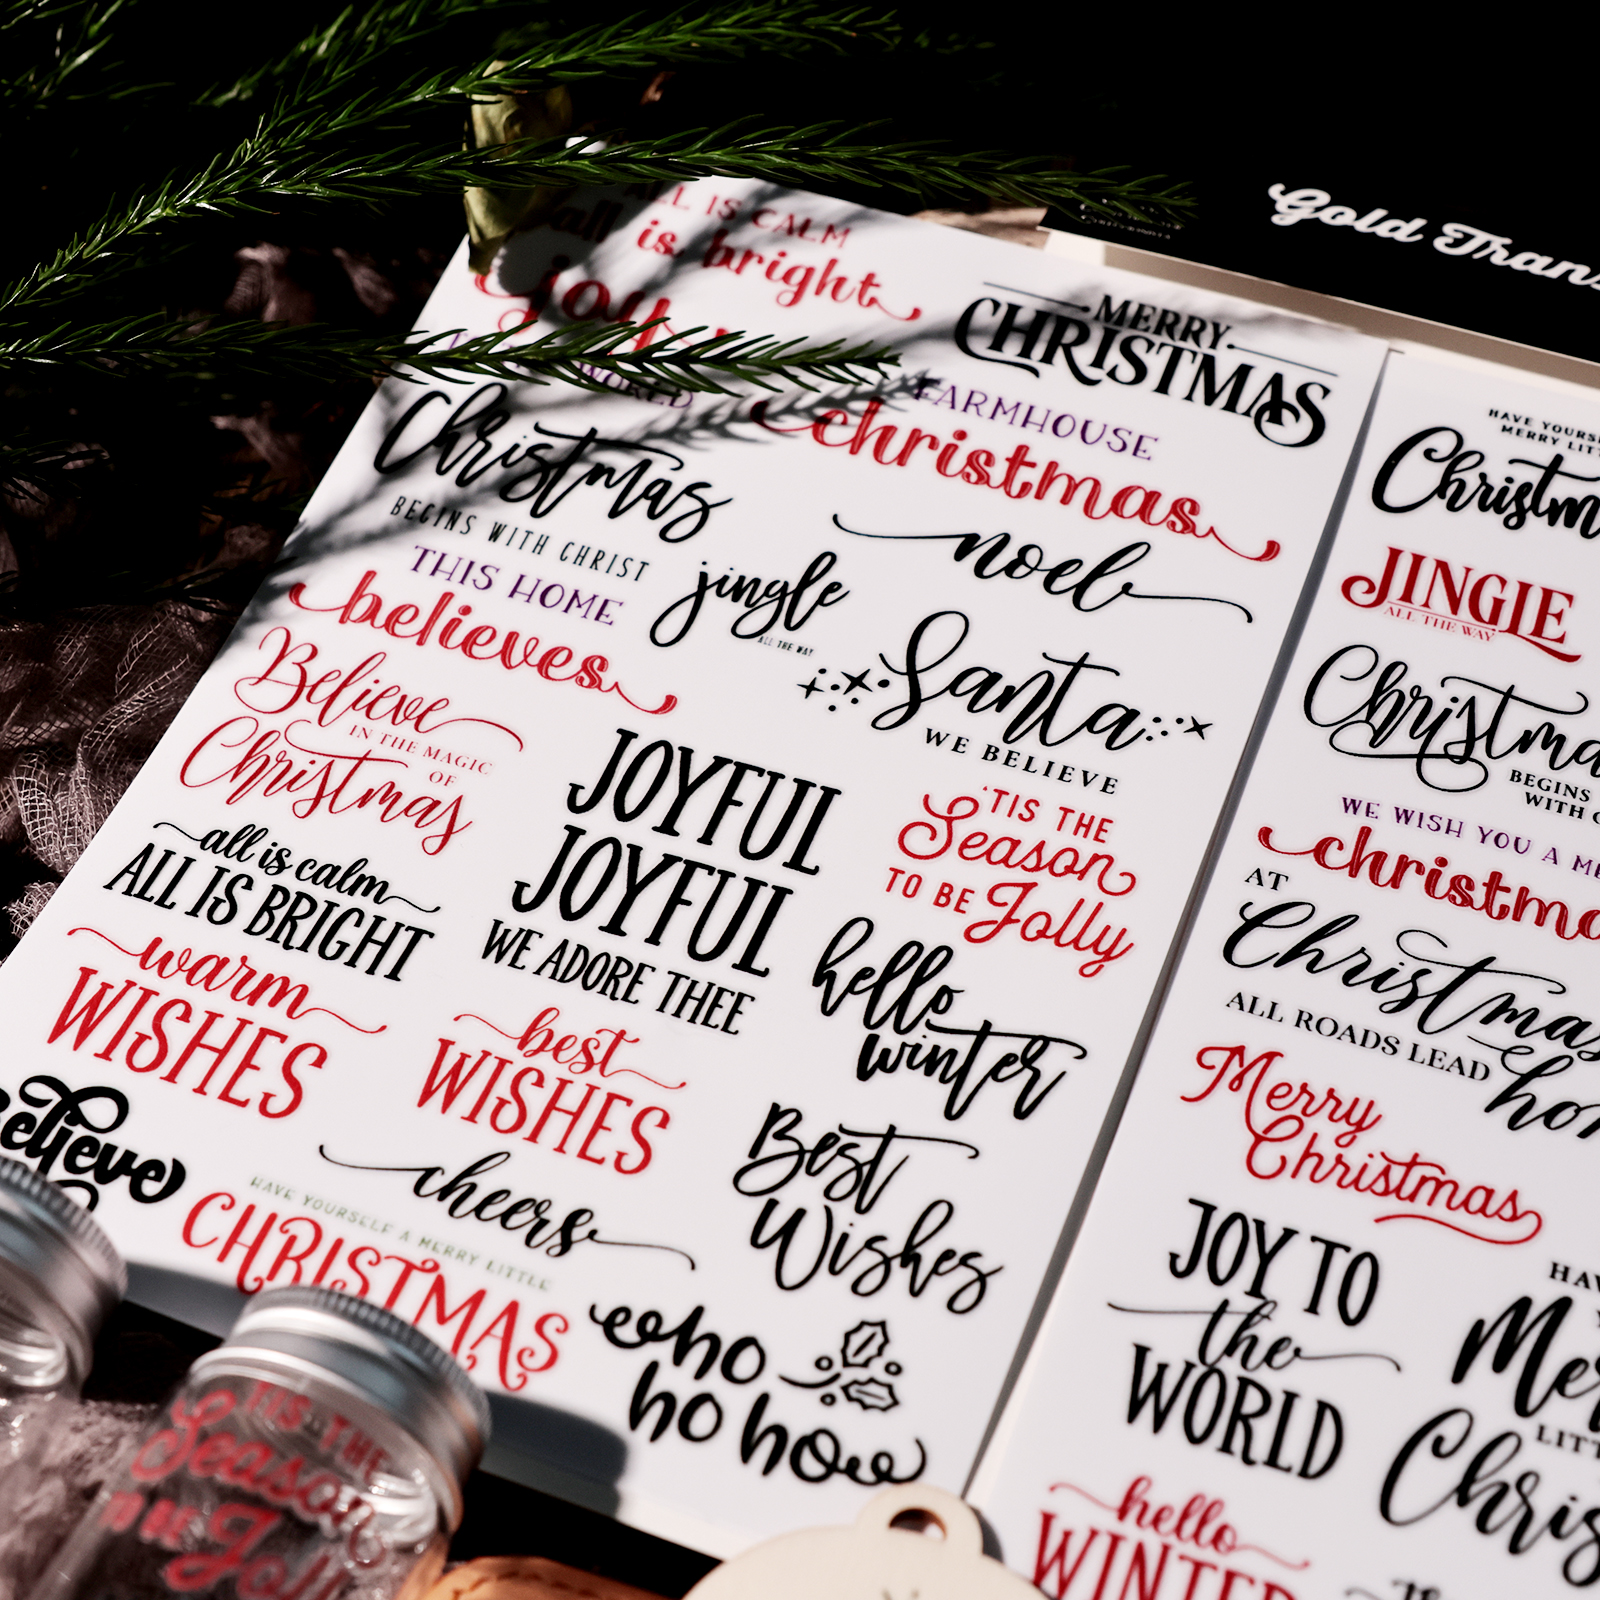 Gold
ALL IS CALM
all is bright
joy
WORLD
MERRY
CHRISTMAS
FARMHOUSE
christmas
Christmas
BEGINS WITH CHRIST
noel
THIS HOME
believes
jingle
ALL THE WAY
Santa
WE BELIEVE
Believe
IN THE MAGIC
OF
Christmas
JOYFUL
JOYFUL
WE ADORE THEE
'TIS THE
Season
TO BE Jolly
all is calm
ALL IS BRIGHT
hello
winter
warm
WISHES
best
WISHES
Best
Wishes
believe
cheers
HAVE YOURSELF A MERRY LITTLE
CHRISTMAS
ho
ho ho
HAVE
MERRY
JINGLE
ALL THE WAY
BEGINS
WITH
WE WISH YOU A
AT
Christmas
ALL ROADS LEAD
Merry
Christmas
JOY TO
the
WORLD
hello
WINTER
'TIS THE
Season
Jolly